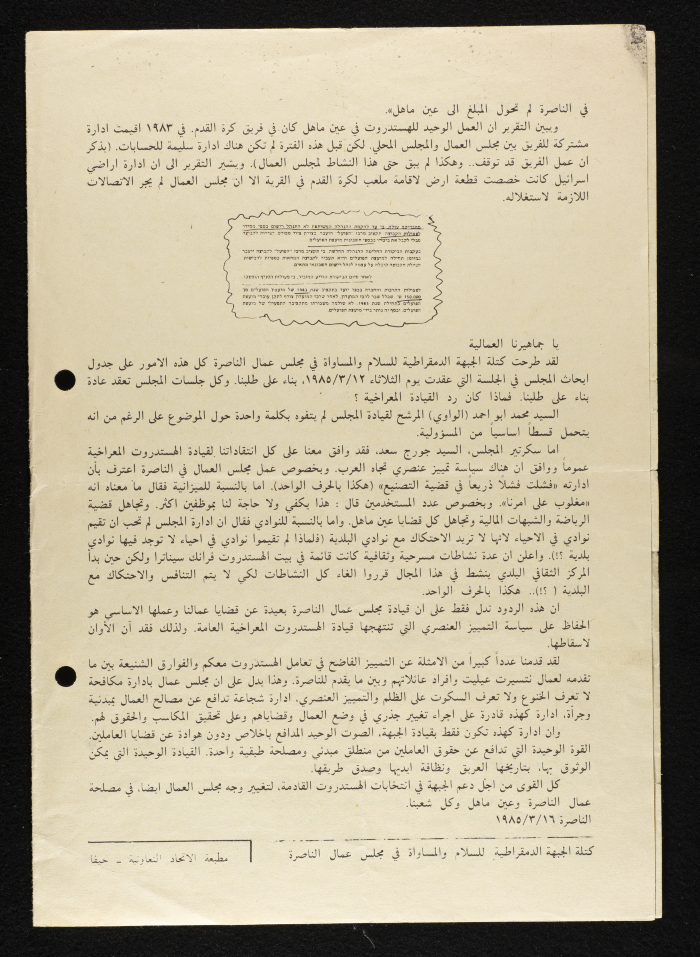 في الناصرة لم تحول المبلغ الى عين ماهل».
ويبين التقرير ان العمل الوحيد للهستدروت في عين ماهل كان في فريق كرة القدم. في ١٩٨٣ اقيمت ادارة
مشتركة للفريق بين مجلس العمال والمجلس المحلي. لكن قبل هذه الفترة لم تكن هناك ادارة سليمة للحسابات. (يذكر
ان عمل الفريق قد توقف.. وهكذا لم يبق حتى هذا النشاط لمجلس العمال). ويشير التقرير الى ان ادارة اراضي
اسرائيل كانت خصصت قطعة ارض لاقامة ملعب لكرة القدم في القرية الا ان مجلس العمال لم يجر الاتصالات
اللازمة لاستغلاله.
يا جماهيرنا العمالية
لقد طرحت كتلة الجبهة الدمقراطية للسلام والمساواة في مجلس عمال الناصرة كل هذه الامور على جدول
ابحاث المجلس في الجلسة التي عقدت يوم الثلاثاء ١٩٨٥/٣/١٢، بناء على طلبنا. وكل جلسات المجلس تعقد عادة
بناء على طلبنا. فماذا كان رد القيادة المعراخية ؟
السيد محمد ابو احمد (الواوي) المرشح لقيادة المجلس لم يتفوه بكلمة واحدة حول الموضوع على الرغم من انه
يتحمل قسطاً اساسياً من المسؤولية.
اما سكرتير المجلس، السيد جورج سعد، فقد وافق معنا على كل انتقاداتنا لقيادة الهستدروت المعراخية
عموماً ووافق ان هناك سياسة تمييز عنصري تجاه العرب. وبخصوص عمل مجلس العمال في الناصرة اعترف بأن
ادارته «فشلت فشلاً ذريعاً في قضية التصنيع» (هكذا بالحرف الواحد). اما بالنسبة للميزانية فقال ما معناه انه
«مغلوب على امرنا». وبخصوص عدد المستخدمين قال : هذا يكفي ولا حاجة لنا بموظفين اكثر. وتجاهل قضية
الرياضة والشبهات المالية وتجاهل كل قضايا عين ماهل. واما بالنسبة للنوادي فقال ان ادارة المجلس لم تحب ان تقيم
نوادي في الاحياء لانها لا تريد الاحتكاك مع نوادي البلدية (فلماذا لم تقيموا نوادي في احياء لا توجد فيها نوادي
بلدية ؟!). واعلن ان عدة نشاطات مسرحية وثقافية كانت قائمة في بيت الهستدروت فرانك سيناترا ولكن حين بدأ
المركز الثقافي البلدي ينشط في هذا المجال قرروا الغاء كل النشاطات لكي لا يتم التنافس والاحتكاك مع
البلدية ( ؟!).. هكذا بالحرف الواحد.
ان هذه الردود تدل فقط على ان قيادة مجلس عمال الناصرة بعيدة عن قضايا عمالنا وعملها الاساسي هو
الحفاظ على سياسة التمييز العنصري التي تنتهجها قيادة الهستدروت المعراخية العامة. ولذلك فقد آن الأوان
لاسقاطها.
لقد قدمنا عدداً كبيراً من الامثلة عن التمييز الفاضح في تعامل الهستدروت معكم والفوارق الشنيعة بين ما
تقدمه لعمال نتسيرت عيليت وافراد عائلاتهم وبين ما يقدم للناصرة. وهذا يدل على ان مجلس عمال بادارة مكافحة
لا تعرف الخنوع ولا تعرف السكوت على الظلم والتمييز العنصري، ادارة شجاعة تدافع عن مصالح العمال بمبدئية
وجرأة، ادارة كهذه قادرة على اجراء تغيير جذري في وضع العمال وقضاياهم وعلى تحقيق المكاسب والحقوق لهم.
وان ادارة كهذه تكون فقط بقيادة الجبهة، الصوت الوحيد المدافع باخلاص ودون هوادة عن قضايا العاملين.
القوة الوحيدة التي تدافع عن حقوق العاملين من منطلق مبدئي ومصلحة طبقية واحدة. القيادة الوحيدة التي يمكن
الوثوق بها، بتاريخها العريق ونظافة ايديها وصدق طريقها.
كل القوى من اجل دعم الجبهة في انتخابات الهستدروت القادمة، لتغيير وجه مجلس العمال ايضا، في مصلحة
عمال الناصرة وعين ماهل وكل شعبنا.
الناصرة ١٩٨٥/٣/١٦
كتلة الجبهة الدمقراطية للسلام والمساواة في مجلس عمال الناصرة
مطبعة الاتحاد التعاونية ـ حيفا